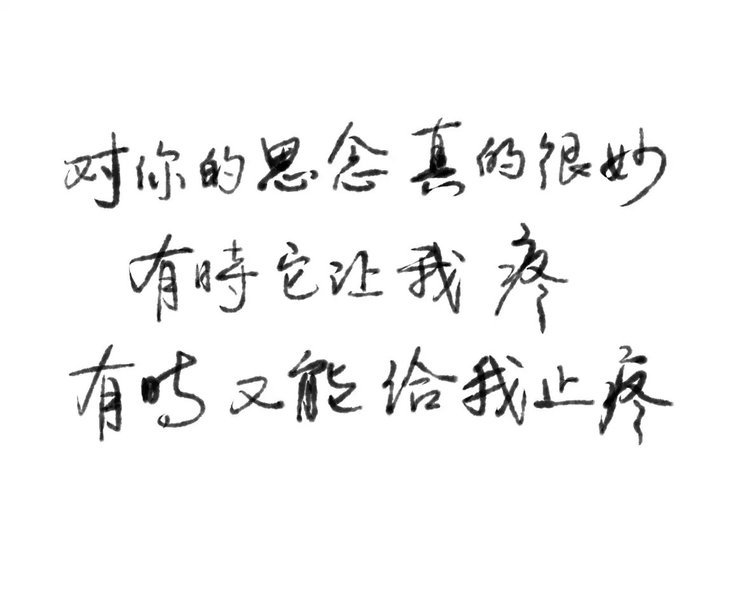 对你的思念真的很妙
有時它让我疼
有时又能给我止疼